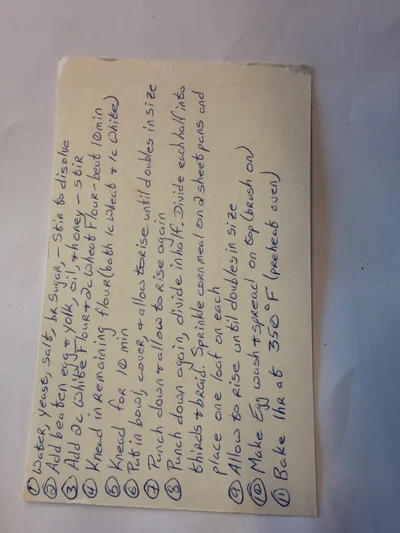 ① Water, yeast, salt, br sugar, - Stir to disolve
② Add beaten egg + yolk, oil, + honey - stir
③ Add 2c White Flour + 2c Wheat Flour - beat 10 min
④ Knead in remaining flour (both 1c Wheat + 1c White)
⑤ Knead for 10 min
⑥ Put in bowl, cover, + allow to rise until doubles in size
⑦ Punch down + allow to rise again
⑧ Punch down again, divide in half. Divide each half into
thirds + braid. Sprinkle corn meal on 2 sheet pans and
place one loaf on each
⑨ Allow to rise until doubles in size
⑩ Make Egg wash + spread on top (brush on)
⑪ Bake 1hr at 350°F (preheat oven)